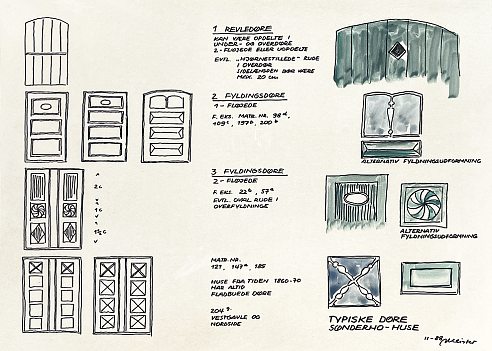 1 REVLEDØRE
KAN VÆRE OPDELTE I
UNDER- OG OVERDØRE
2-FLØJEDE ELLER UOPDELTE
EVTL. „HJØRNESTILLEDE" RUDE
I OVERDØR
SIDELÆNGDEN BØR VÆRE
MAX. 20 cm
2 FYLDINGSDØRE
1-FLØJEDE
F. EKS. MATR. NR. 98
ALTERNATIV FYLDNINGSUDFORMNING
3 FYLDINGSDØRE
2-FLØJEDE
F. EKS. 22
EVTL. OVAL RUDE I
OVERFYLDNINGE
ALTERNATIV
FYLDNINGSUDFORMNING
MATR. NR.
HUSE FRA TIDEN 1860-70
HAR ALTID
FLADBUEDE DØRE
VESTGAVLE OG
NORDSIDE
TYPISKE DØRE
SØNDERHO-HUSE